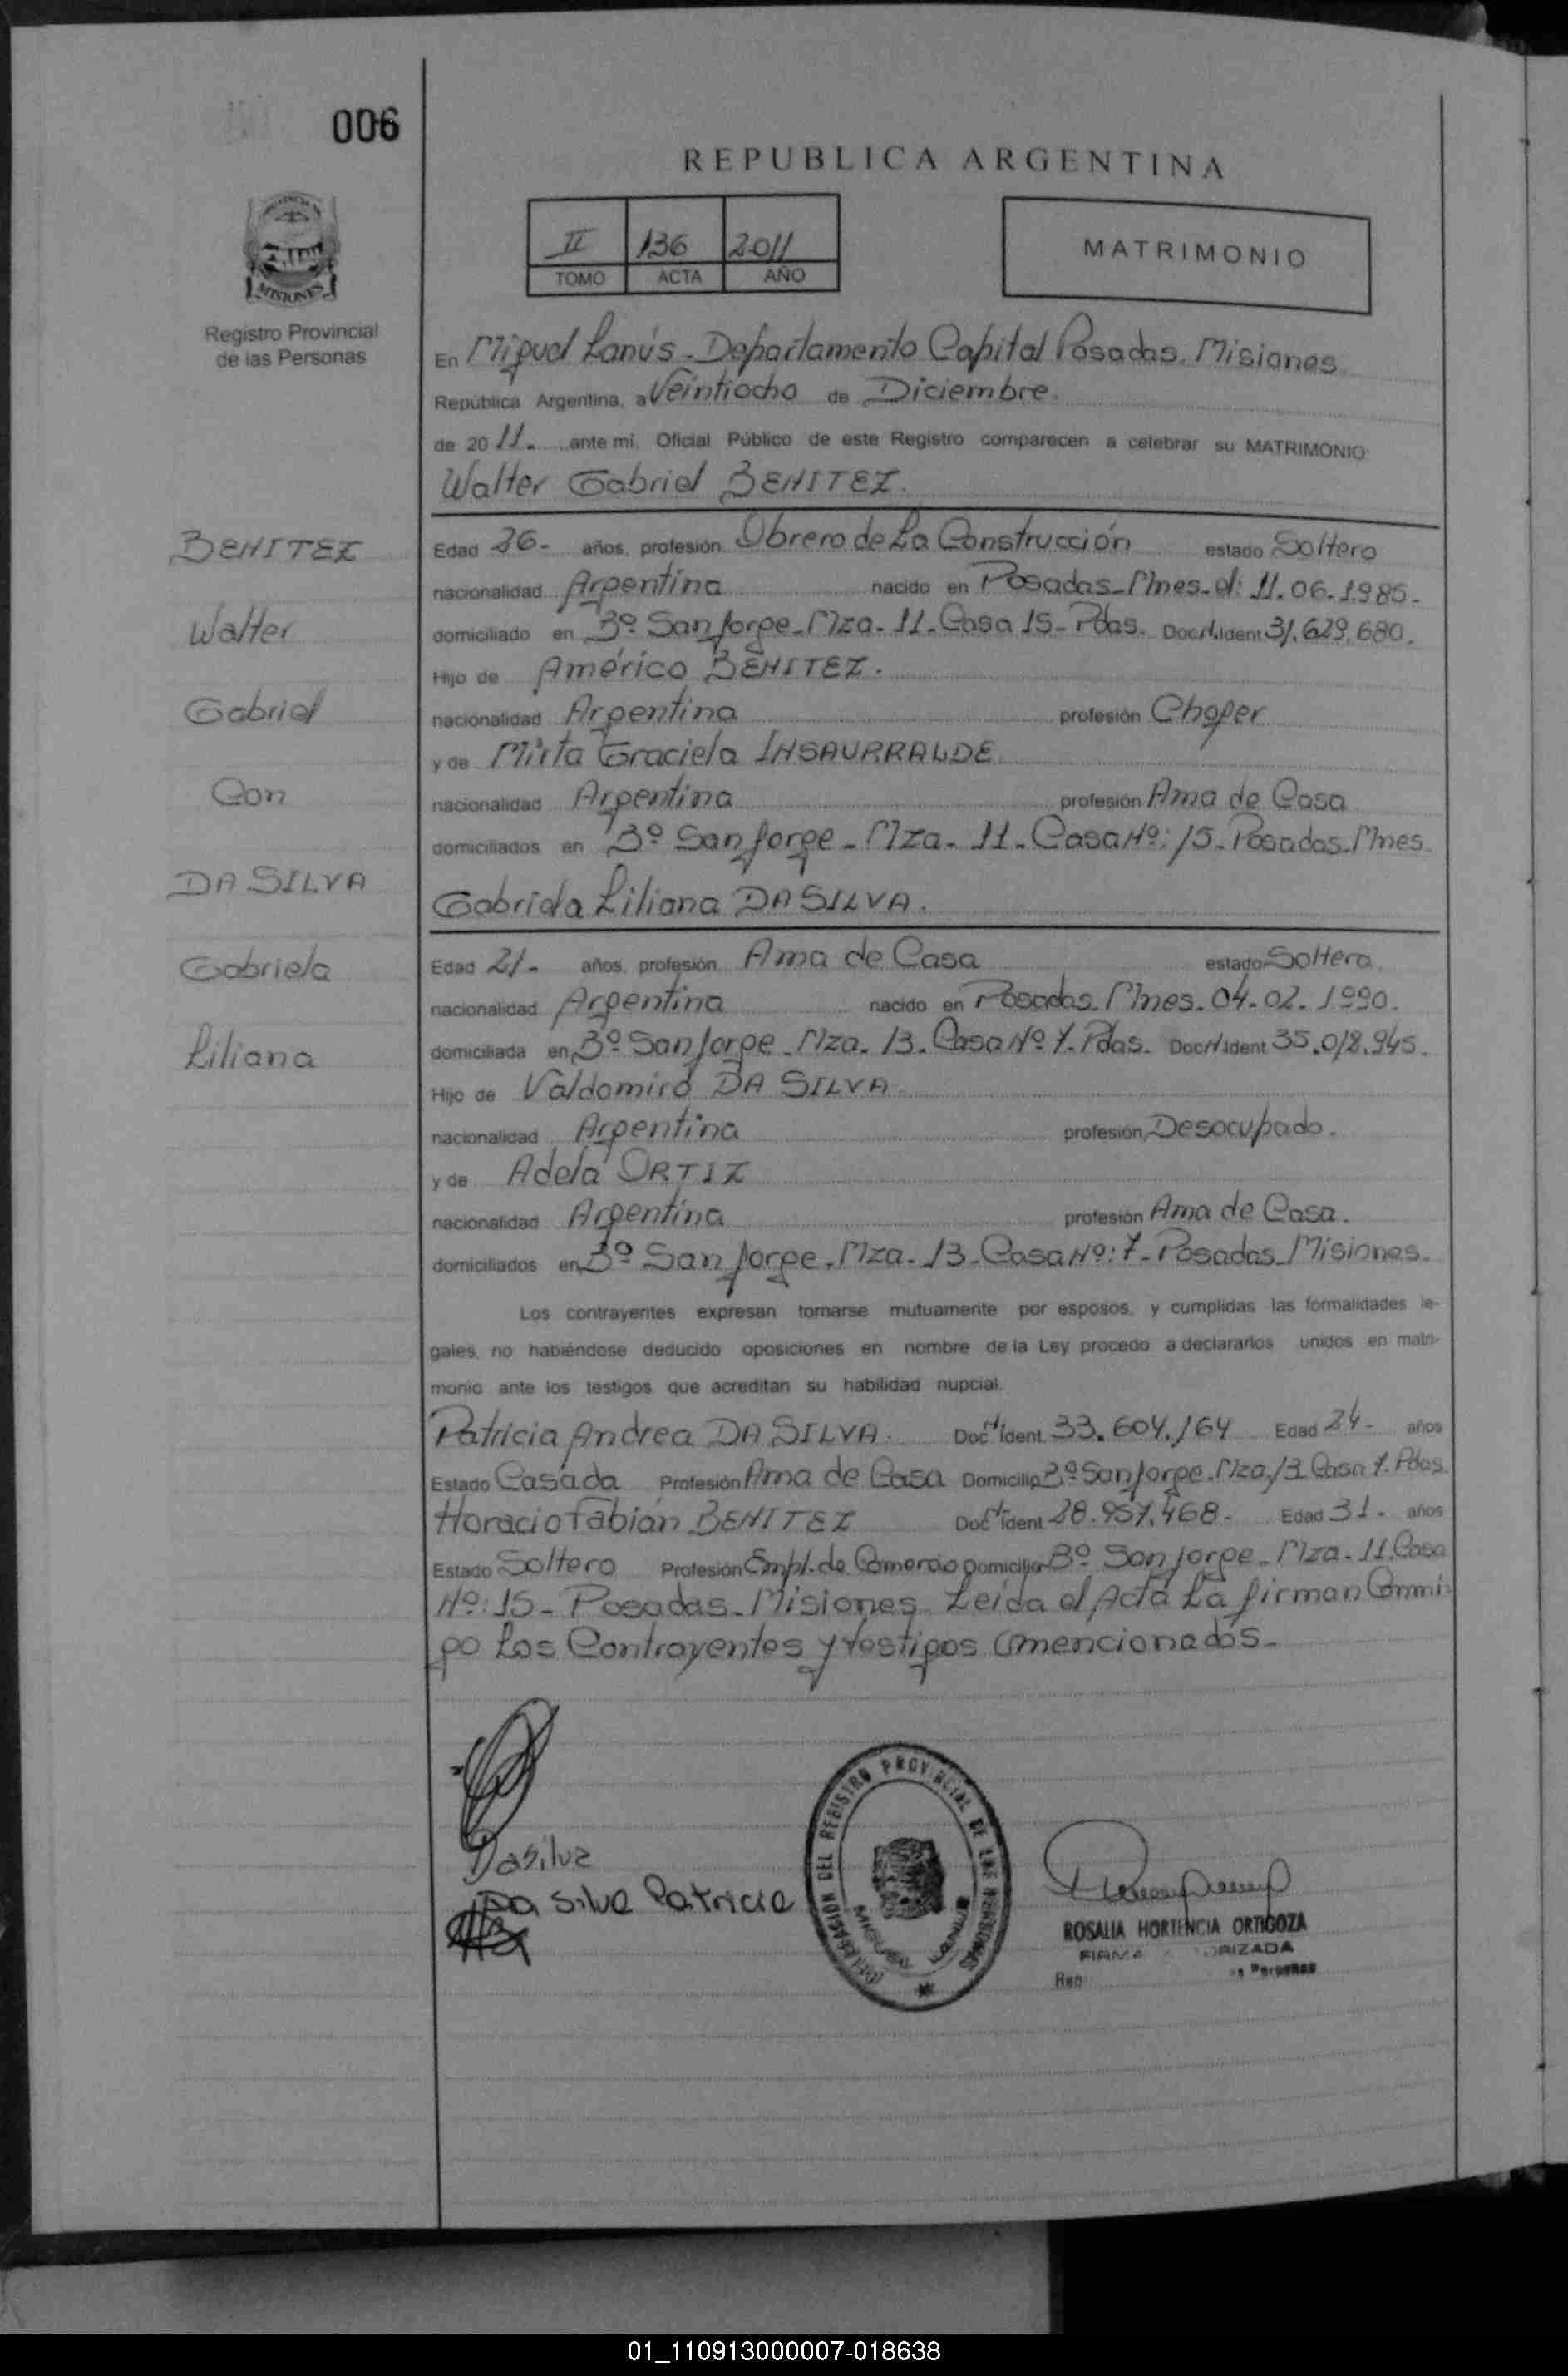 006
REPUBLICA ARGENTINA
II 136 2011
TOMO ACTA AÑO
MATRIMONIO
PROVINCIA DE
MISIONES
Registro Provincial
de las Personas
En Miguel Lanús - Departamento Capital Posadas Misiones
República Argentina, a Veintiocho de Diciembre.
de 2011. ante mi, Oficial Público de este Registro comparecen a celebrar su MATRIMONIO:
Walter Gabriel BENITEZ.
BENITEZ
Walter
Gabriel
Con
DA SILVA
Gabriela
Liliana
Edad 26- años, profesión Obrero de La Construcción estado Soltero
nacionalidad Argentina nacido en Posadas-Mnes. el: 11.06.1985-
domiciliado en Bº San Jorge-Mza-11-Casa 15-Pdas. Doc.N.Ident 31.629.680.
Hijo de Américo BENITEZ.
nacionalidad Argentina profesión Chofer
y de Mirta Graciela INSAURRALDE
nacionalidad Argentina profesión Ama de Casa
domiciliados en Bº San Jorge-Mza-11-Casa Nº: 15-Posadas-Mnes.
Gabriela Liliana DA SILVA.
Edad 21- años, profesión Ama de Casa estado Soltera
nacionalidad Argentina nacido en Posadas-Mnes. 04-02-1990.
domiciliada en Bº San Jorge-Mza. 13-Casa Nº 7-Pdas. Doc.N.Ident 35.018.945.
Hijo de Valdomiro DA SILVA.
nacionalidad Argentina profesión Desocupado.
y de Adela ORTIZ
nacionalidad Argentina profesión Ama de Casa.
domiciliados en Bº San Jorge-Mza-13-Casa Nº: 7-Posadas-Misiones.
Los contrayentes expresan tomarse mutuamente por esposos, y cumplidas las formalidades le-
gales, no habiéndose deducido oposiciones en nombre de la Ley procedo a declararlos unidos en matri-
monio ante los testigos que acreditan su habilidad nupcial.
Patricia Andrea DA SILVA. Doc.N.Ident. 33.604.164 Edad 24- años
Estado Casada Profesión Ama de Casa Domicilio Bº San Jorge-Mza.13 Casa 7-Pdas.
Horacio Fabián BENITEZ Doc.N.Ident 28.957.468- Edad 31- años
Estado Soltero Profesión Empl. de Comercio Domicilio Bº San Jorge-Mza-11-Casa
Nº: 15-Posadas-Misiones Leída el Acta La firman Conmi-
go Los Contrayentes y testigos mencionados-
Dasilva
Da Silva Patricia
DELEGACION DEL REGISTRO PROVINCIAL DE LAS PERSONAS
ROSALIA HORTENCIA ORTIGOZA
FIRMA
Personas
01_110913000007-018638